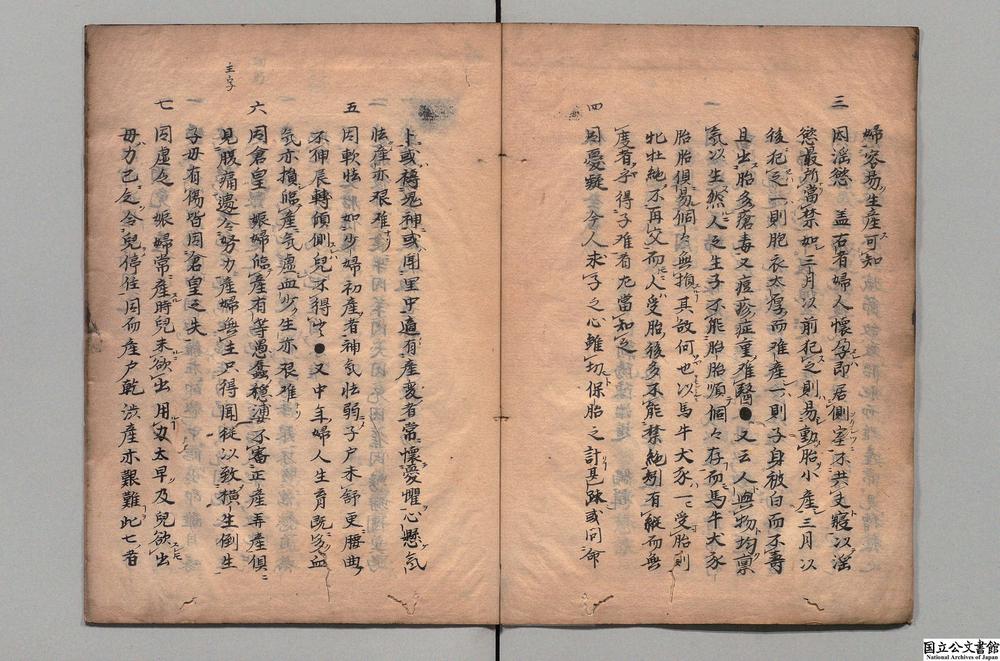 婦容易生産可知
三 因淫慾 盖古者婦人懷孕即居側室不共丈寢以淫
慾最所當禁如三月以前犯之則易動胎小産三月以
後犯之一則胞衣太厚而难産一則子身被白而不壽
且出胎多瘡毒又痘疹症重难醫●又云人與物均禀
氣以生然人之生子不能胎胎順個々存而馬牛犬豕
胎胎俱易個々無損其故何也以馬牛犬豕一受胎則
牝牡絶不再交而人受胎後多不能禁絶矧有縱而無
度者乎得子难者尤當知之
四 因憂疑 今人求子之心雖切保胎之計甚踈或问命
卜或禱鬼神或闾里中適有産変者常懷憂懼心懸氣
怯産亦艰难
五 因軟怯 如少婦初産者神氣怯弱子户未舒更腰曲
不伸展轉傾側兒不得出●又中年婦人生育既多血
氣亦損臨産氣虚血少生亦艰难
六 因倉皇 娠婦臨産有等愚蠢穏婆不審正産弄産俱
見腹痛遽令努力産婦無主只得聞從以致横生倒生
子母有傷皆因倉皇之失
七 因虚乏 娠婦常産時兒未欲出用力太早及兒欲出
母力已乏令兒停住因而産户乾渋産亦艱难此七者
主字
国立公文書館
National Archives of Japan